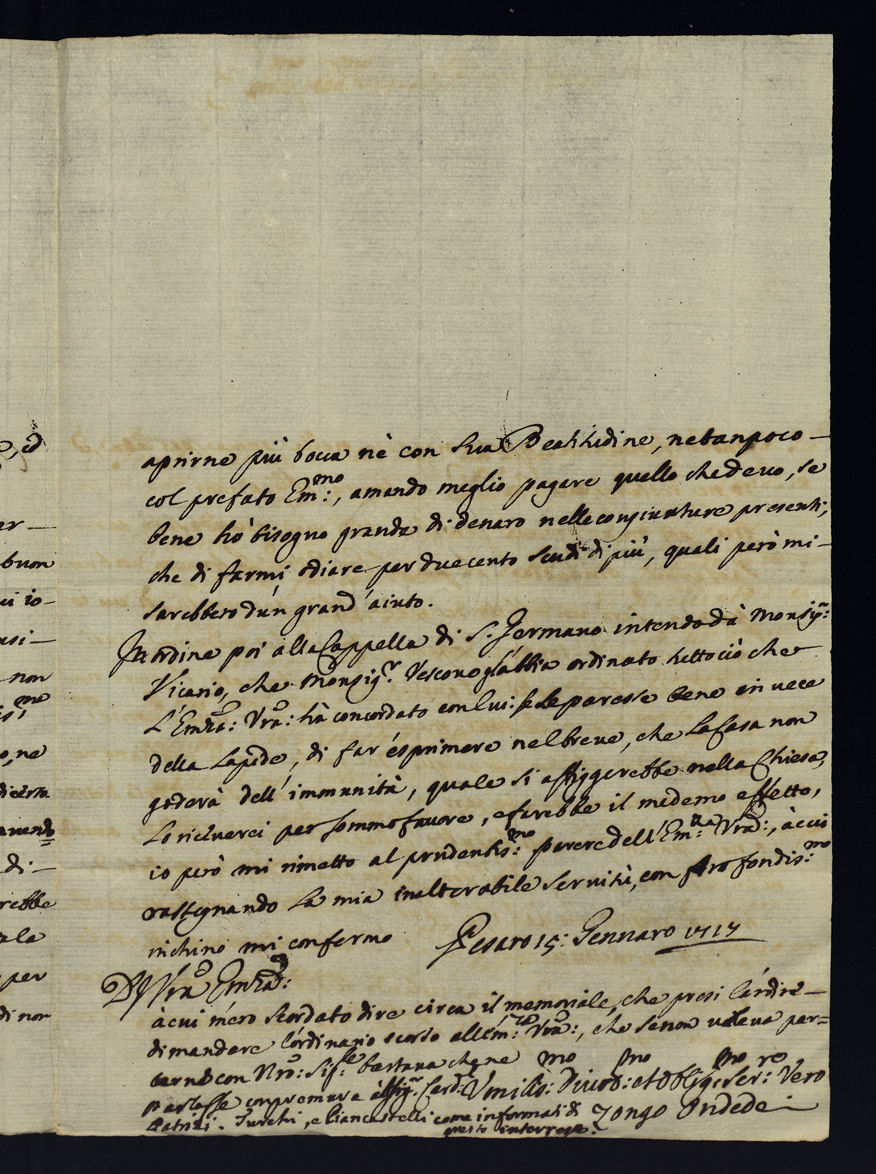 aprirne più bocca nè con Sua Beatitudine, ne tanpoco —
col prefato Em:mo, amando meglio pagare quello che devo, se
bene hò bisogno grande di denaro nelle congiunture presenti,
che di farmi odiare per duecento scudi di più, quali però mi —
sarebbero d'ún grand'aiuto.
In ordine poi alla Cappella di S. Germano intendo dà Monsig:r
Vicario, che Monsig:r Vescovo gl'abbia ordinato tutto ciò che
L'Emza: Vra: hà concordato con lui: se le paresse bene in vece
della Lapide, di far'esprimere nel breve, che la Casa non
goderà dell'immunità, quale si affiggerebbe nella Chiesa,
Lo riceverei per sommo favore, e farebbe il medemo effetto,
io però mi rimetto al prudentis:mo parere dell'Em:za Vra:, à cui
rassegnando la mia inalterabile servitù, con profondis:mo
inchino mi confermo
Pesaro 15: Gennaro 1717
Di Vra Emza:
à cui m'ero scordato dire circa il memoriale, che presi l'ardire —
di mandare l'ordinario scorso all'Em:za Vra:, che se non voleva par=
larne con Nro: Sig:re bastava che ne
parlasse con premura à Sig:r Card: Umilis:mo Divot:mo et Oblig:mo Ser:re Vero
Patrizi, Turchi, e Biancastelli come informati di
questo interesse.
Zongo Ondedei